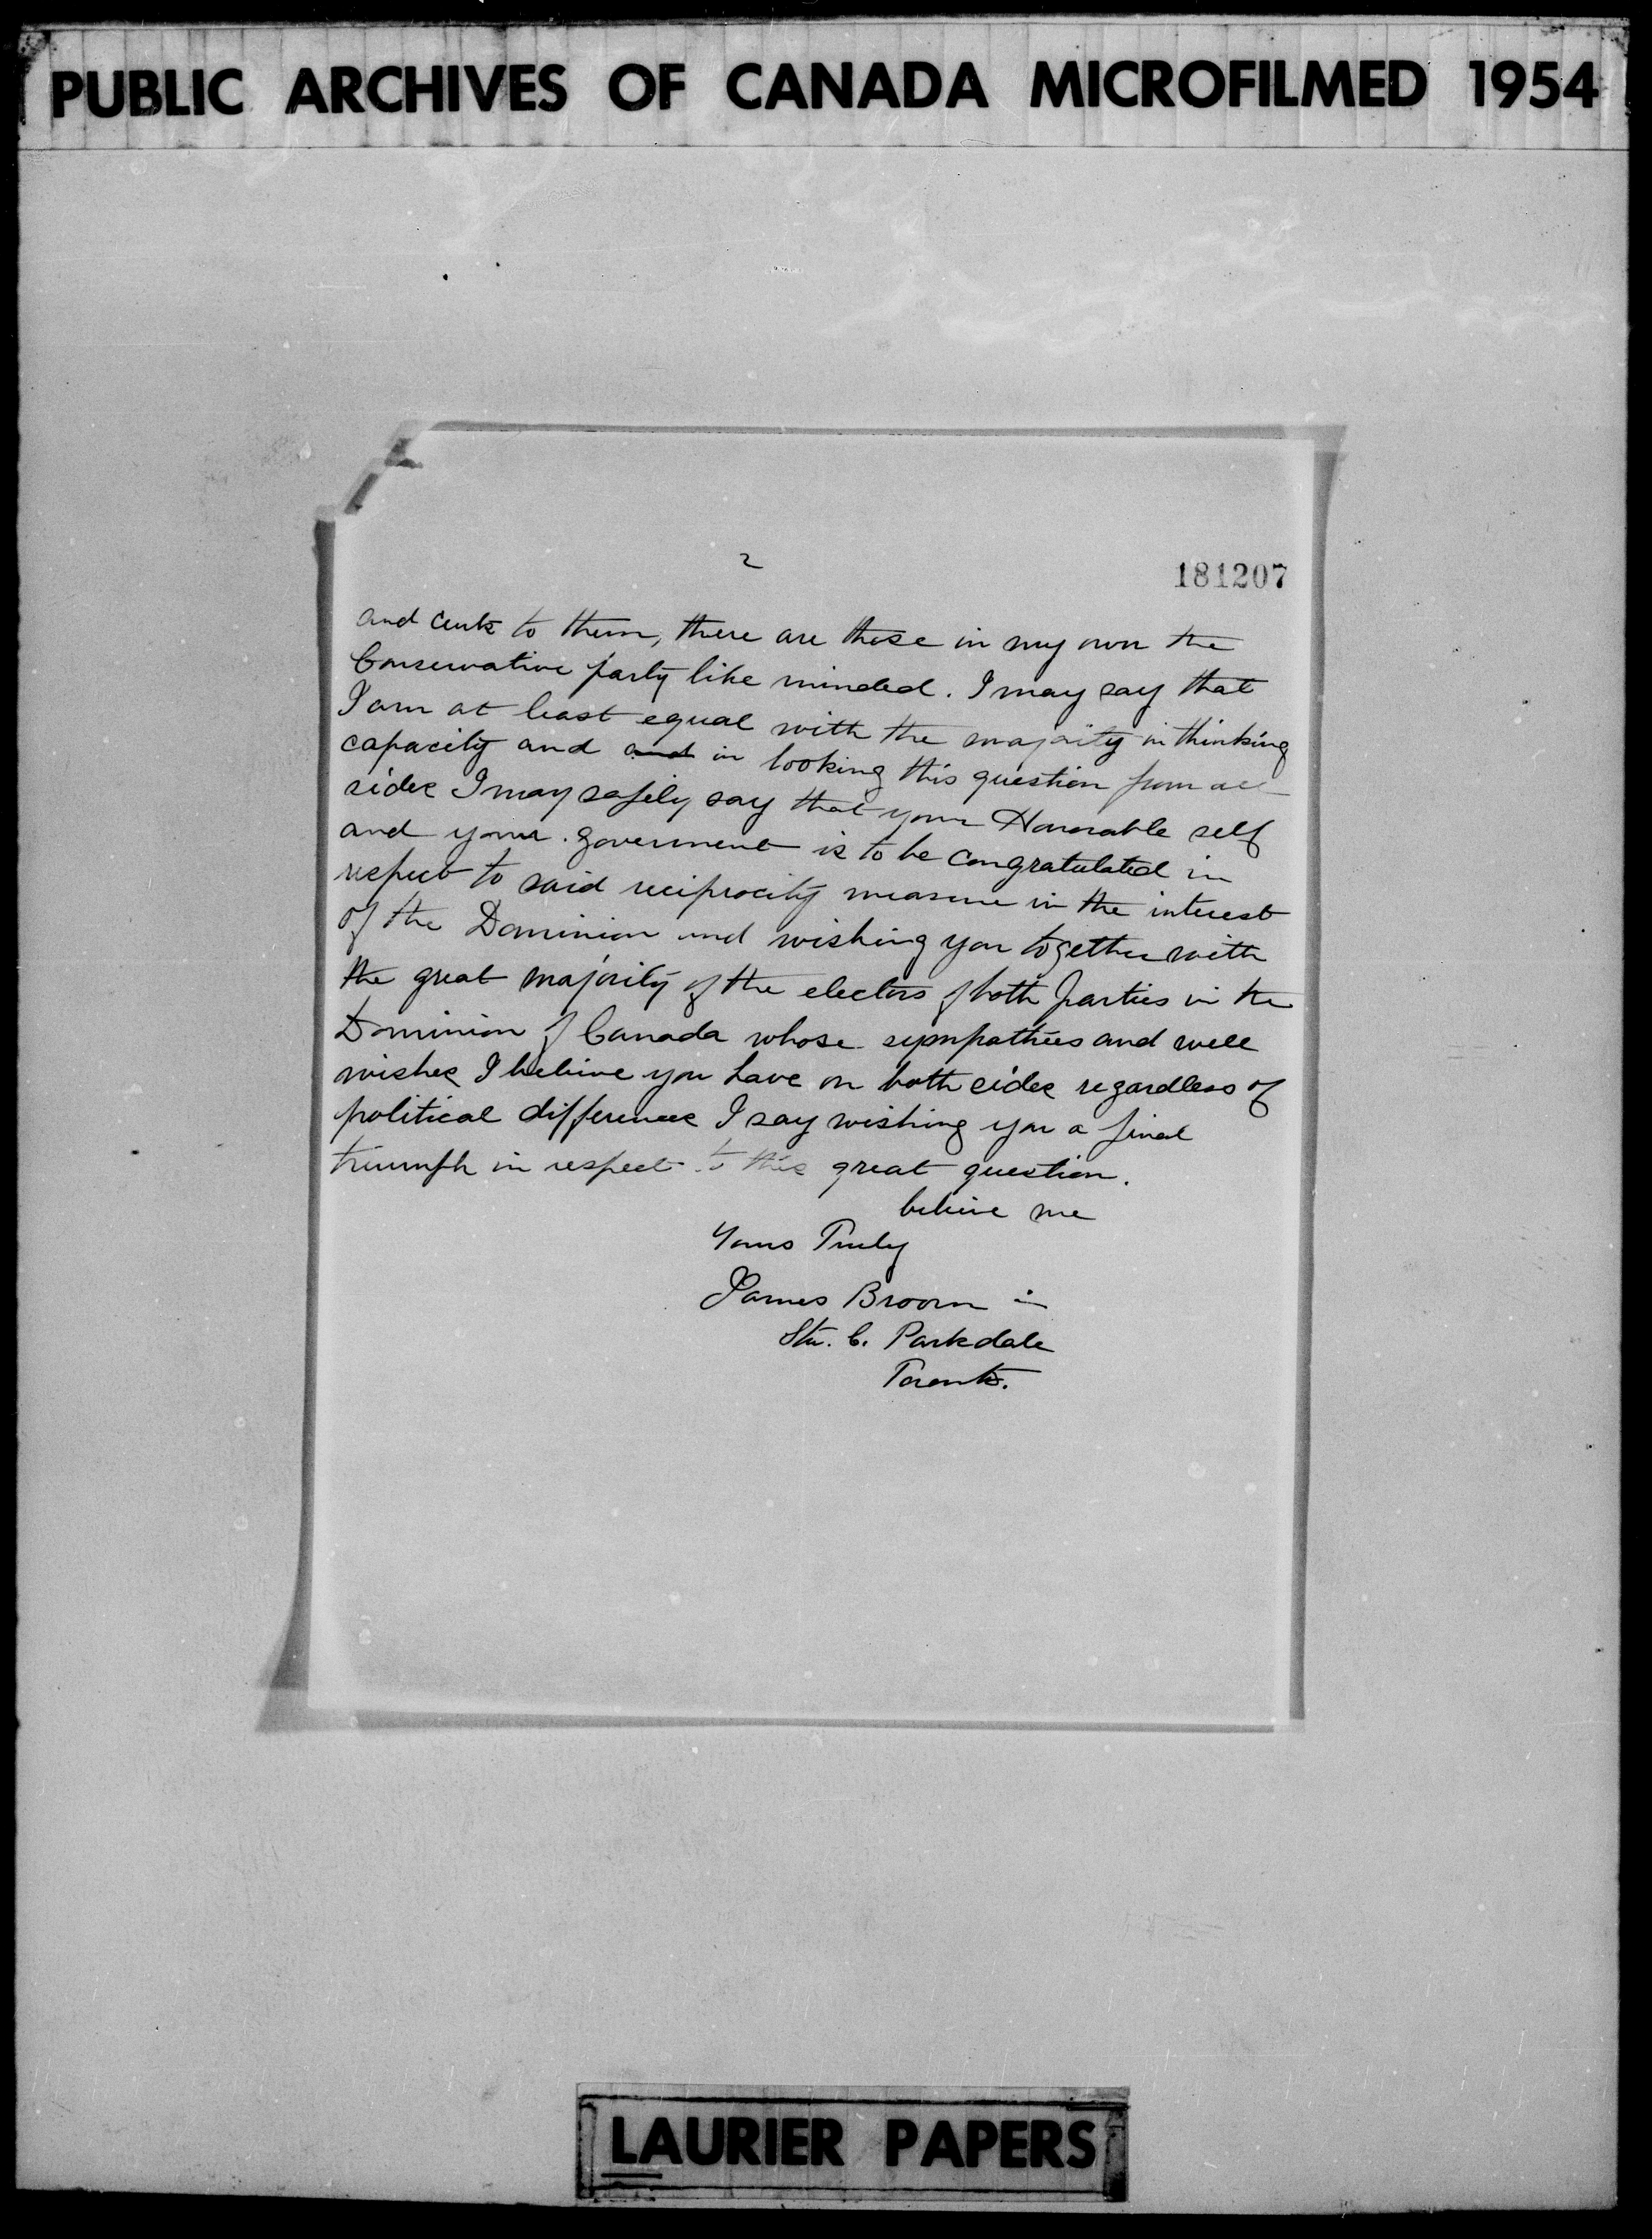 PUBLIC ARCHIVES OF CANADA MICROFILMED 1954
2
181207
and to them, there are those in my own the
Conservative party like minded. I may say that
I am at least equal with the majority in thinking
capacity and and in looking this question from all
sides I may safely say that your Honorable self
and your goverment is to be congratulated in
respect to said reciprocity measure in the interest
of the Dominion and wishing you together with
the great majority of the electors of both parties in the
Dominion of Canada whose sympathies and well
wishes I believe you have on both sides regardless of
political differences I say wishing you a final
triumph in respect to this great question.
believe me
Yours Truly
James Broom
Stn. C. Parkdale
Toronto.
LAURIER PAPERS